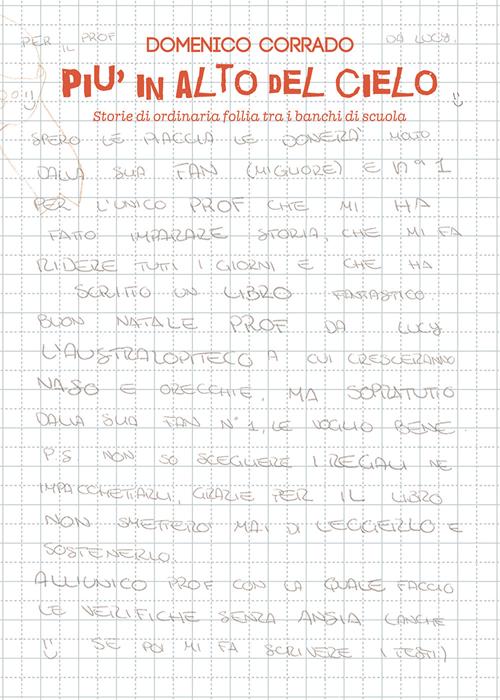 PER IL PROF DA LUCY.
DOMENICO CORRADO
PIU' IN ALTO DEL CIELO
Storie di ordinaria follia tra i banchi di scuola
SPERO LE PIACCIA LE DONERA' MOLTO
DALLA SUA FAN (MIGLIORE) E N° 1
PER L'UNICO PROF CHE MI HA
FATTO IMPARARE STORIA, CHE MI FA
RIDERE TUTTI I GIORNI E CHE HA
SCRITTO UN LIBRO FANTASTICO.
BUON NATALE PROF DA LUCY
L'AUSTRALOPITECO A CUI CRESCERANNO
NASO E ORECCHIE, MA SOPRATUTTO
DALLA SUA FAN N° 1, LE VOGLIO BENE.
P.S NON SO SCEGLIERE I REGALI NE
IMPACCHETTARLI, GRAZIE PER IL LIBRO
NON SMETTERO' MAI DI LEGGERLO E
SOSTENERLO.
ALL'UNICO PROF CON LA QUALE FACCIO
LE VERIFICHE SENZA ANSIA (ANCHE
SE POI MI FA SCRIVERE I TESTI)